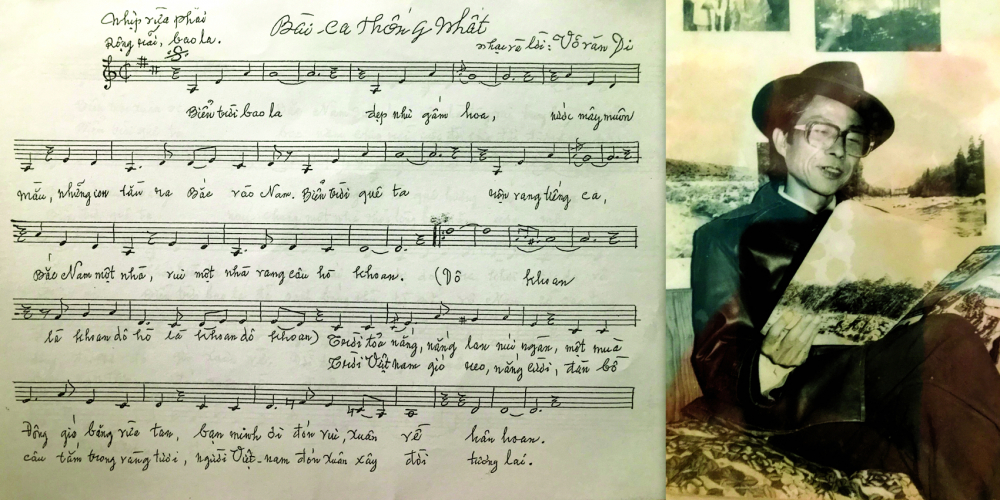 Bài ca thống nhất
Nhịp vừa phải
Rộng rãi, bao la.
nhạc và lời: Võ văn Di
Biển trời bao la đẹp như gấm hoa, nước mây muôn
mầu, những con tầu ra Bắc vào Nam. Biển trời quê ta rộn vang tiếng ca,
Bắc Nam một nhà, vui một nhà vang câu hò khoan. (Dô khoan
là khoan dô hò là khoan dô khoan) Trời toả nắng, nắng lan núi ngàn, một mùa
Trời Việt nam gió reo, nắng cười, đàn bồ
Đông gió băng vừa tan, bạn mình ơi đón vui, xuân về hân hoan.
câu tắm trong vàng tươi, người Việt-nam đón xuân xây đời tương lai.